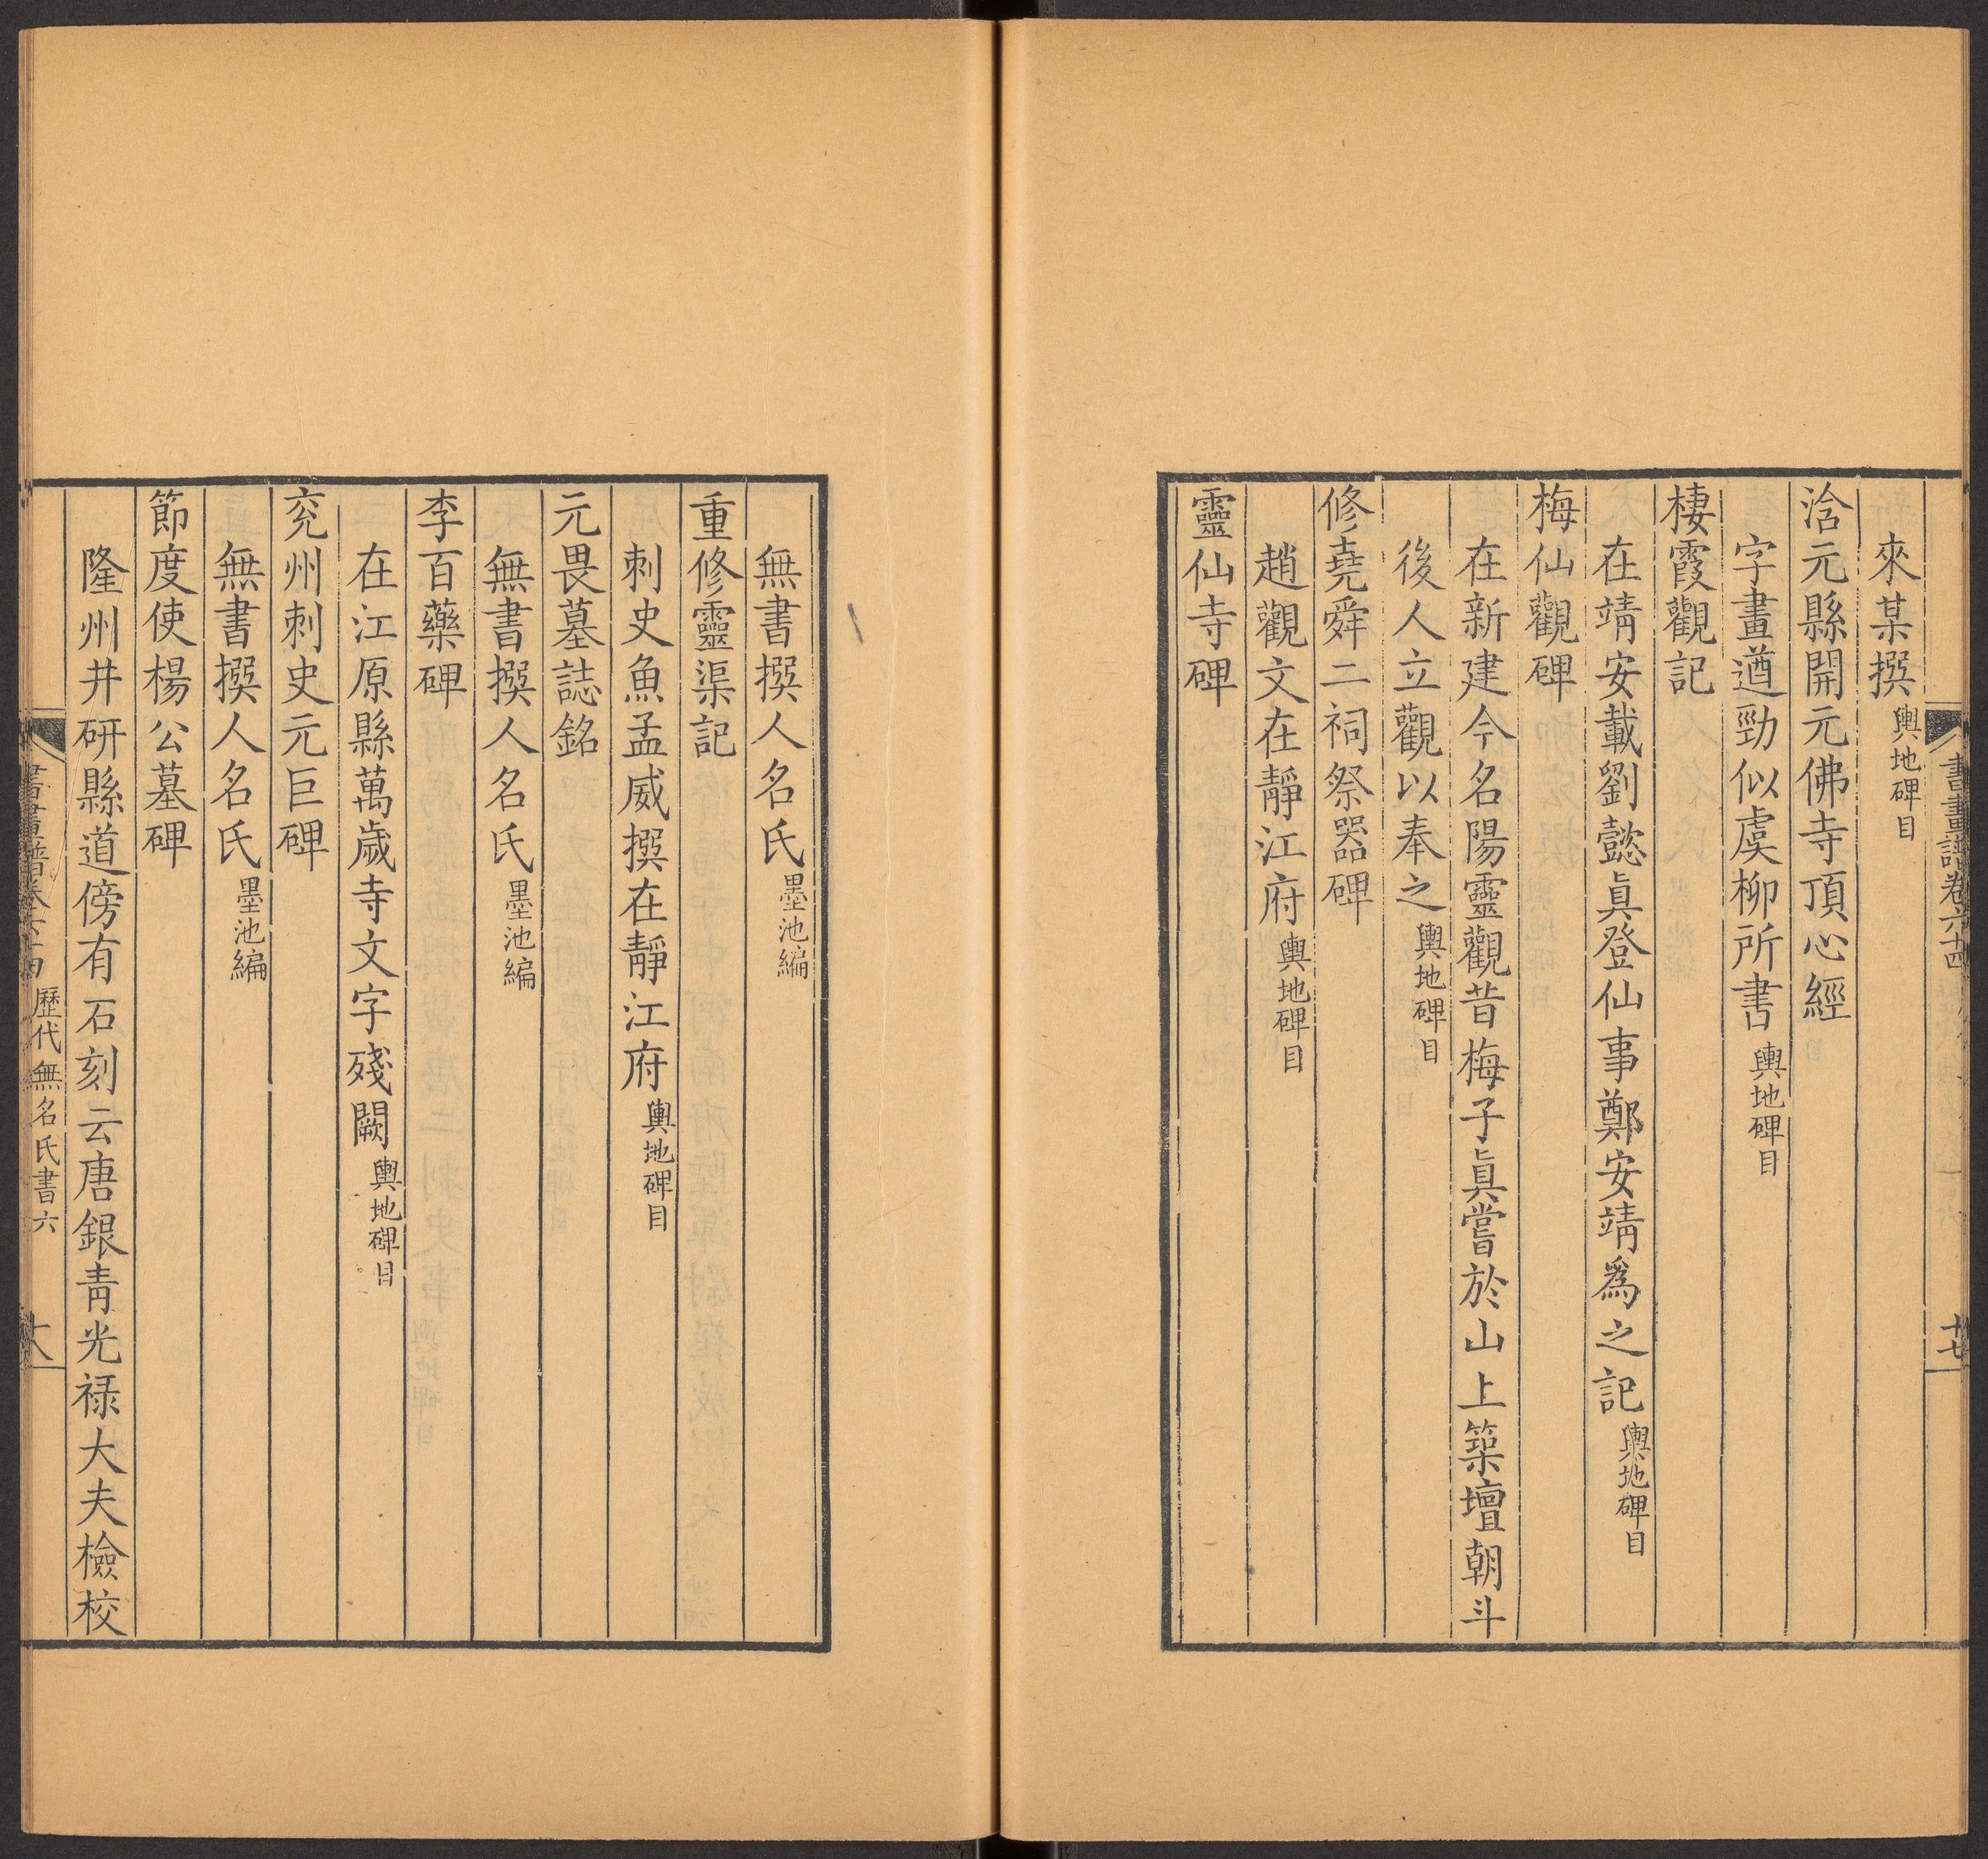 書畫譜卷六十四
十七
來某撰輿地碑目
浛元縣開元佛寺頂心經
字畫遒勁似虞柳所書輿地碑目
棲霞觀記
在靖安載劉懿眞登仙事鄭安靖爲之記輿地碑目
梅仙觀碑
在新建今名陽靈觀昔梅子眞嘗於山上築壇朝斗
後人立觀以奉之輿地碑目
修堯舜二祠祭器碑
趙觀文在靜江府輿地碑目
靈仙寺碑
無書撰人名氏墨池編
重修靈渠記
刺史魚孟威撰在靜江府輿地碑目
元畏墓誌銘
無書撰人名氏墨池編
李百藥碑
在江原縣萬歲寺文字殘闕輿地碑目
兖州刺史元巨碑
無書撰人名氏墨池編
節度使楊公墓碑
隆州井研縣道傍有石刻云唐銀青光禄大夫檢校
書畫譜卷六十四 歷代無名氏書六